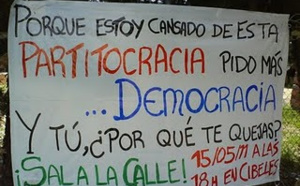 PORQUE ESTOY CANSADO DE ESTA
PARTITOCRACIA PIDO MÁS
...DEMOCRACIA
Y TÚ, ¿POR QUÉ TE QUEJAS?
¡SAL A LA CALLE! 15/05/11 A LAS
18H EN CIBELES